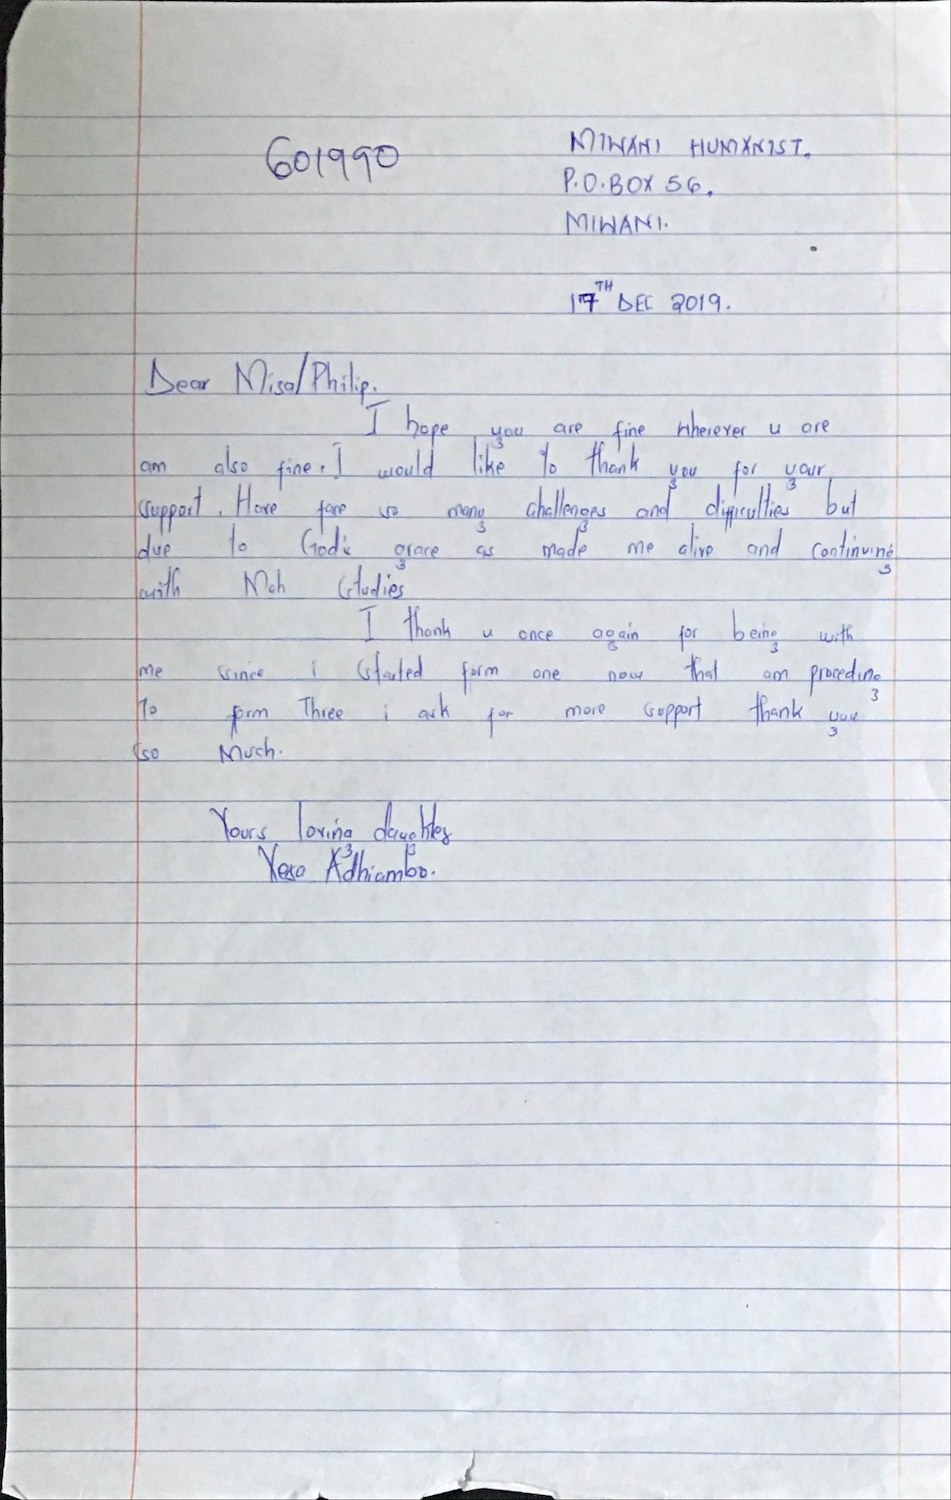 601990
MIWANI HUMANIST.
P.O.BOX 56,
MIWANI.
17TH DEC 2019.
Dear Misa/Philip.
I hope you are fine wherever u are
am also fine. I would like to thank you for your
support. Have face so many challenges and difficulties but
due to God's grace as made me alive and continuing
with Mah studies
I thank u once again for being with
me since i started form one now that am proceding
To form Three i ask for more support thank you
so Much.
Yours loving daughter
Adhiambo.